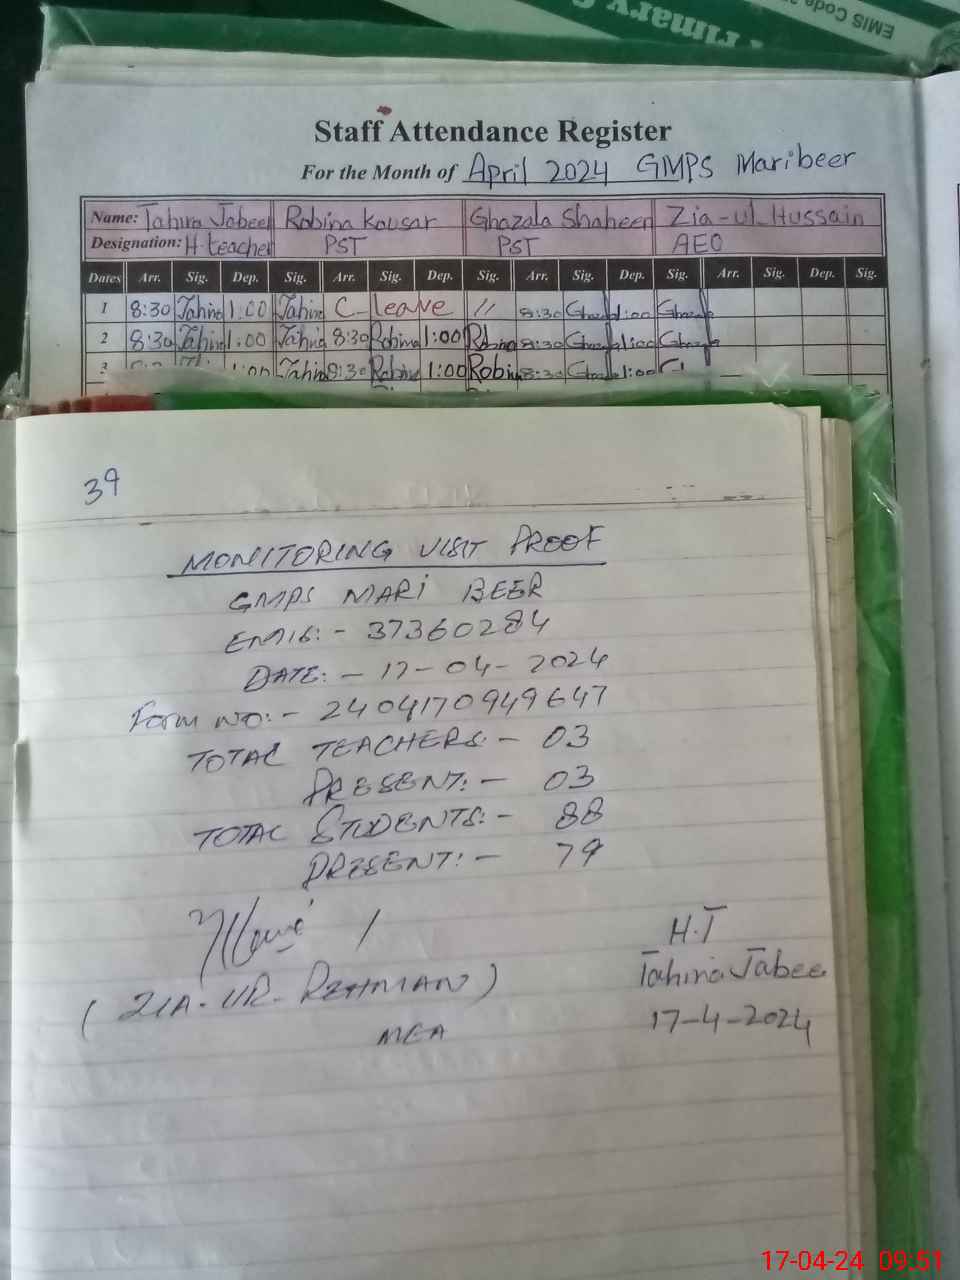 EMIS Code
Primary
Staff Attendance Register
For the Month of April 2024 GMPS Maribeer
Name: Tahira Jabeen Robina Kousar Ghazala Shaheen Zia-ul-Hussain
Designation: H-teacher PST PST AEO
Dates Arr. Sig. Dep. Sig. Arr. Sig. Dep. Sig. Arr. Sig. Dep. Sig. Arr. Sig. Dep. Sig.
1 8:30 Tahira 1:00 Tahira C- leave // 8:30 Ghaza 1:00 Ghazala
2 8:30 Tahira 1:00 Tahira 8:30 Robina 1:00 Robina 8:30 Ghaza 1:00 Ghazala
3 1:00 Tahira 8:30 Robina 1:00 Robina 8:30 Ghaza 1:00
39
MONITORING VISIT PROOF
GMPS MARI BEER
EMIS:- 37360284
DATE:- 17-04-2024
Form NO:- 2404170949647
TOTAL TEACHERS:- 03
PRESENT:- 03
TOTAL STUDENTS:- 88
PRESENT:- 79
(ZIA-UR-REHMAN)
MEA
H.T
Tahira Jabee
17-4-2024
17-04-24 09:51